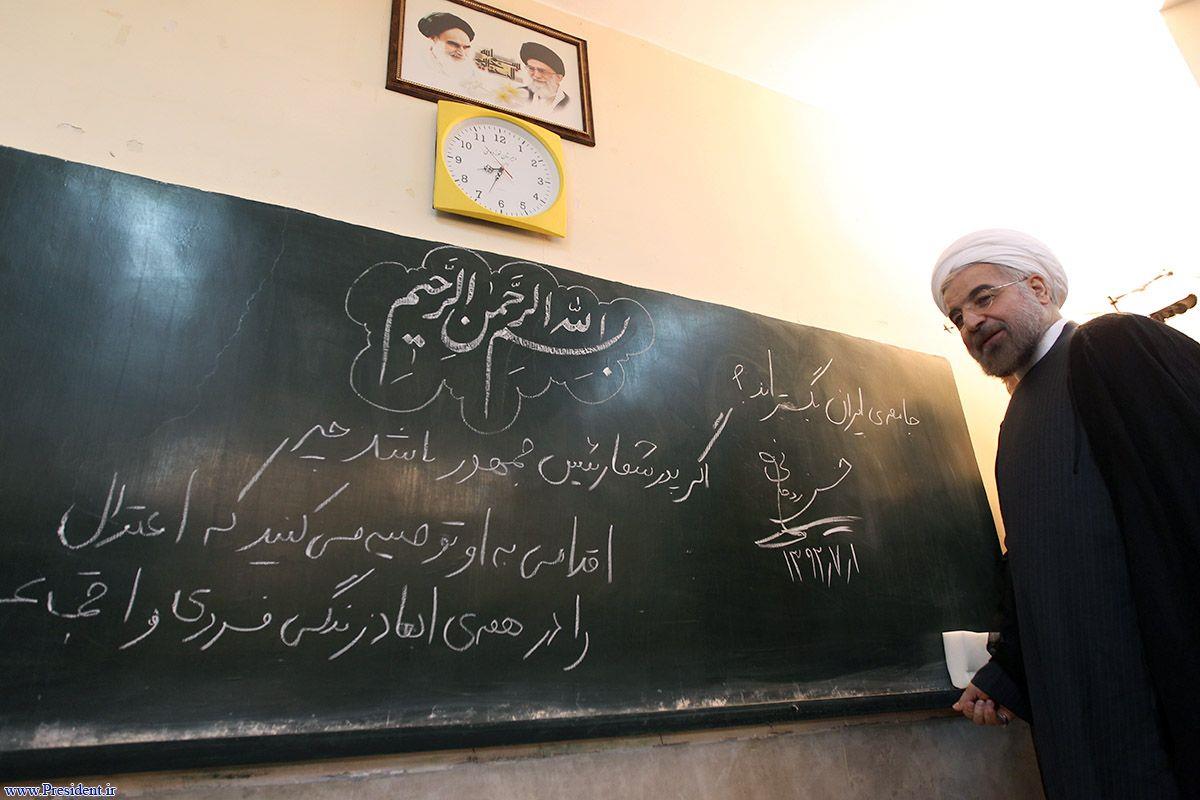 12
1
2
3
4
5
6
7
8
9
10
11
بِسْمِ اللهِ الرَّحْمٰنِ الرَّحِيمِ
اگر پدر شما رئیس جمهور باشد چه
اقدامی به او توصیه می کنید که اعتدال
را در همه‌ی ابعاد زندگی فردی و اجتماعی
جامعه‌ی ایران بگستراند؟
حسن روحانی
۱۳۹۲/۷/۱
www.President.ir